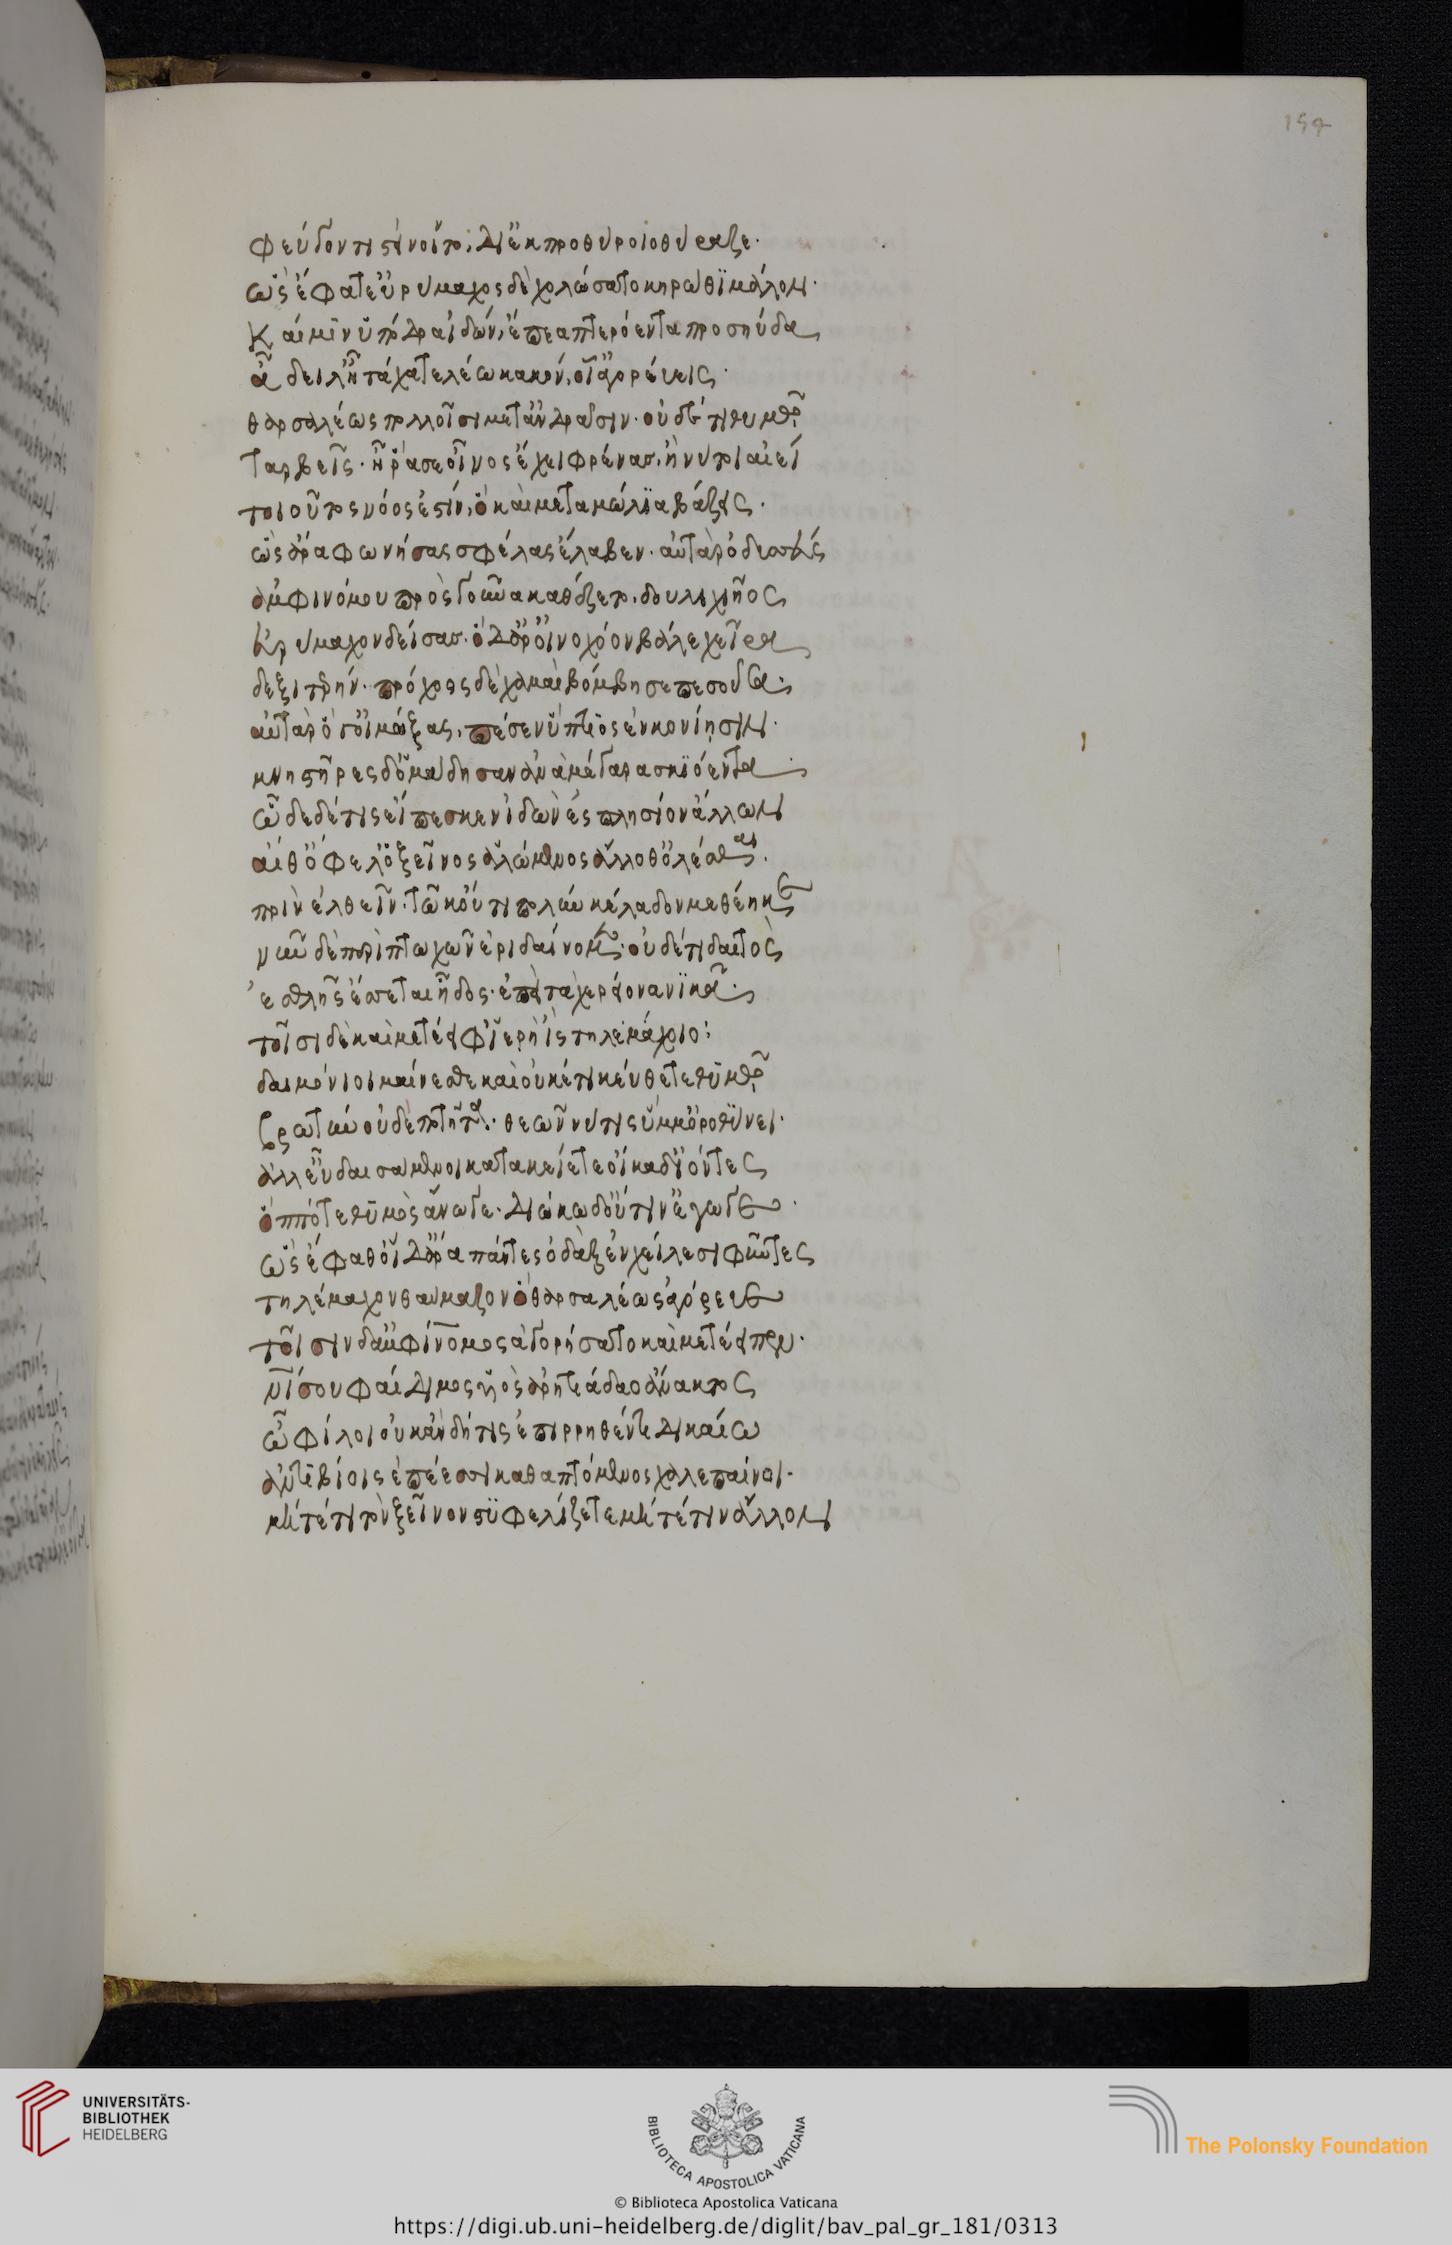 φεύγοντι στείνοιτο, διὲκ προθύροιο θύραζε.
ὣς ἔφατ' εὐρύμαχος δὲ χολώσατο κηρωθϊ μάλον.
καί μιν ὑπόδρα ἰδὼν, ἔπεα πτερόεντα προσηύδα
ἆ δειλ' ἦ τάχα τελέω κακόν, οἷ' ἀγορεύεις.
θαρσαλέως πολλοῖσι μετ' ἀνδράσιν. οὐδέ τι θυμῶ
ταρβεῖς. ἦ ῥά σε οἶνος ἔχει φρένας. ἤ νυ τοι αἰεί
τοιοῦτος νόος ἐστίν, ὃ καὶ μεταμώλϊα βάζεις.
ὣς ἄρα φωνήσας σφέλας ἔλαβεν. αὐτὰρ ὀδυσσεύς
ἀμφινόμου πρὸς γοῦνα καθέζετο. δουλιχιῆος
εὐρυμαχον δείσας. ὁ δ' ἂρ οἰνοχόον βάλε χεῖρα
δεξιτερήν. πρόχοος δὲ χαμαὶ βόμβησε πεσοῦσα.
αὐτὰρ ὅ γ' οἰμώξας, πέσεν ὕπτϊος ἐν κονίησιν.
μνηστῆρες δ' ὁμαδησαν ἀνὰ μέγαρα σκϊόεντα.
ὧδε δέ τις εἴπεσκεν ἰδὼν ἐς πλησίον ἄλλων
αἴθ' ὄφελ' ὁ ξεῖνος ἀλώμενος ἄλλοθ' ὀλέσθαι.
πρὶν ἐλθεῖν. τῶ κ' οὔ τι πολὺν κέλαδον μεθέηκε
νῦν δὲ περὶ πτωχῶν ἐριδαίνομεν. οὐδέ τι δαιτὸς
ἐσθλῆς ἔσεται ἦδος. ἐπεὶ τὰ χερείονα νϊκᾶ.
τοῖσι δὲ καὶ μετέειφ' ϊερὴ ἲς τηλεμάχοιο.
δαιμόνιοι μαίνεσθε καὶ οὐκέτι κεύθετε θῡμῶ
βρωτὺν οὐδὲ ποτῆτα. θεῶν νυ τις ὔμμ' ὀροθύνει.
ἀλλ' εὖ δαισαμενοι κατακείετε οἴκαδ' ϊόντες
ὁππότε θῡμὸς ἄνωγε. διώκω δ' οὔτιν' ἔγωγε.
ὣς ἔφαθ' οἳ δ' ἄρα πάντες ὀδὰξ ἐν χείλεσι φῦντες
τηλέμαχον θαυμαζον ὃ θαρσαλέως ἀγόρευε
τοῖσιν δ' ἀμφίνομος ἀγορήσατο καὶ μετέειπεν.
νῑσου φαίδιμος ὑιὸς ἀρητϊάδαο ἄνακτος
ὦ φίλοι οὐκ ἂν δή τις ἐπι ρρηθέντι δικαίω
ἀντιβίοις ἐπέεσσι καθαπτόμενος χαλεπαίνοι.
μήτέ τι τὸν ξεῖνον στϋφελίζετε μήτέ τιν' ἄλλον
UNIVERSITÄTS-
BIBLIOTHEK
HEIDELBERG
BIBLIOTECA APOSTOLICA VATICANA
The Polonsky Foundation
© Biblioteca Apostolica Vaticana
https://digi.ub.uni-heidelberg.de/diglit/bav_pal_gr_181/0313